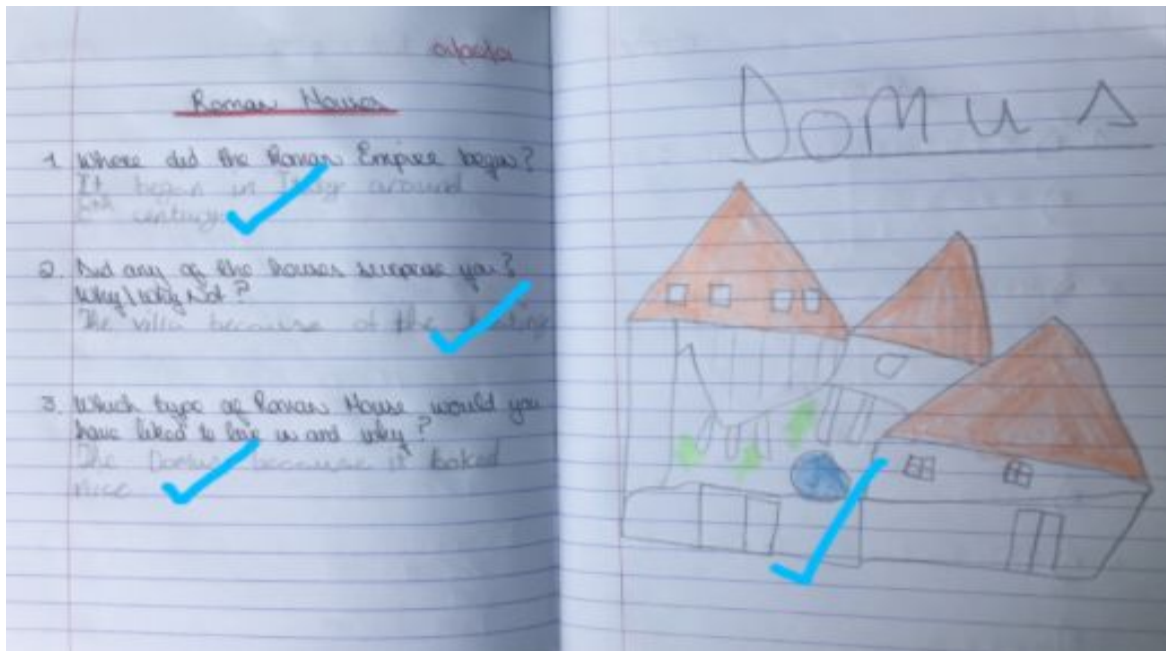 Roman Houses
1 Where did the Roman Empire begin?
It began in Italy around
century
2. Did any of the houses surprise you?
Why/Why Not?
The villa because of the
3. Which type of Roman House would you
have liked to live in and why?
The Domus because it looked
nice
DOMUS